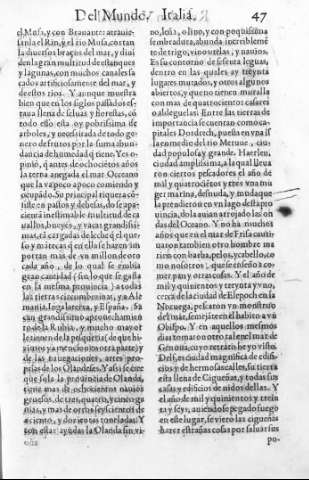 Del Mundo. Italia. 47
el Mosa, y con Brauante: atrauie-
san la el Rin, y el rio Mosa, cortan
la diuersos braços del mar, y diui
den la gran multitud de estanques
y lagunas, con muchos canales sa
cados artificiosamente del mar, y
destos rios. Y aunque muestra
bien que en los siglos passados es-
taua llena de seluas y florestas, có
todo esto esta oy pobrissima de
arboles, y necessitada de todo ge-
nero de frutos por la suma abun-
dancia de humedad que tiene. Es o-
pinió, que antes de ochocientos años
la tierra anegada el mar Occeano
que la va poco a poco comiendo y
ocupádo. Su principal riqueza có-
siste en pastos y dehesas, do se apa-
cienta inestimable multitud de ca
uallos, bueyes, y vacas grandissi-
mas, tá cargadas de leche q̃ el que-
so y máteca q̃ en ella se hazen im
portan mas de vn millon de oro
cada año, de lo qual se embia
gran cantidad (sin lo que se gasta
en la mesma prouincia) a todas
las tierras circumuezinas, y a Ale
mania, Ingalaterra, y España. Sa
can grandissimo aprouechamien
to de la Rubia, y mucho mayor
le tienen de la pesqueria (de que hi-
zimos ya mencion en otra parte) y
de las nauegaciones, artes pro-
prias de los Olandeses. Y assi se cree
que sola la prouincia de Olanda,
tiene mas de ochocientos nauios
gruessos, de tres, quatro, y cinco ga
uias, y mas de otros seyscientos de
a ciento, y dozientos toneladas. Y
con estar ayudas la Olanda sin vi-
no, leña, o lino, y con poquissima
sembradura, abunda increiblemen
te de trigo, vino, telas, y nauios.
Es su contorno de sesenta leguas,
dentro de las quales ay treynta
lugares murados, y otros algunos
abiertos, y que no tienen muralla
con mas de quatrocientos casares
o aldeguelas. Entre las tierras de
importancia se cuentan como ca-
pitales Dordrech, puesta en vna isl
la en medio del rio Merue, ciu
dad populosa y grande. Haerlen,
ciudad amplissima, a la qual lleua
ron ciertos pescadores el año de
mil y quatrocientos y tres vna mu
ger marina, desnuda, y muda que
la prendieron en vn lago desta pro
uincia, do la auian arrojado las on
das del Oceano. Y no ha muchos
años que en el mar de Frisa cauti-
uaron tambien otro hombre ma
rino con barba, pelos, y cabello, co
mo nosotros, que se enseño a co-
mer pan y otras cosas. Y el año de
mil y quinientos y treynta y vno,
cerca de la ciudad de Elepoch en la
Noruega, pescaron vn monstruo
del mar, semejante en el habito a vn
Obispo. Y en aquellos mesmos
dias tomaron otro tal en el mar de
Genoua, cuyo retrato he yo visto.
Delft, es ciudad magnifica de edifi-
cios y de hermosas calles, su tierra
esta llena de Cigueñas, y todas sus
casas y edificios de nidos dellas. Y
el año de mil y quinientos y trein-
ta y seys, auiendose pegado fuego
en este lugar, se vieron las cigueñas
hazer estrañas cosas por saluar sus
po-